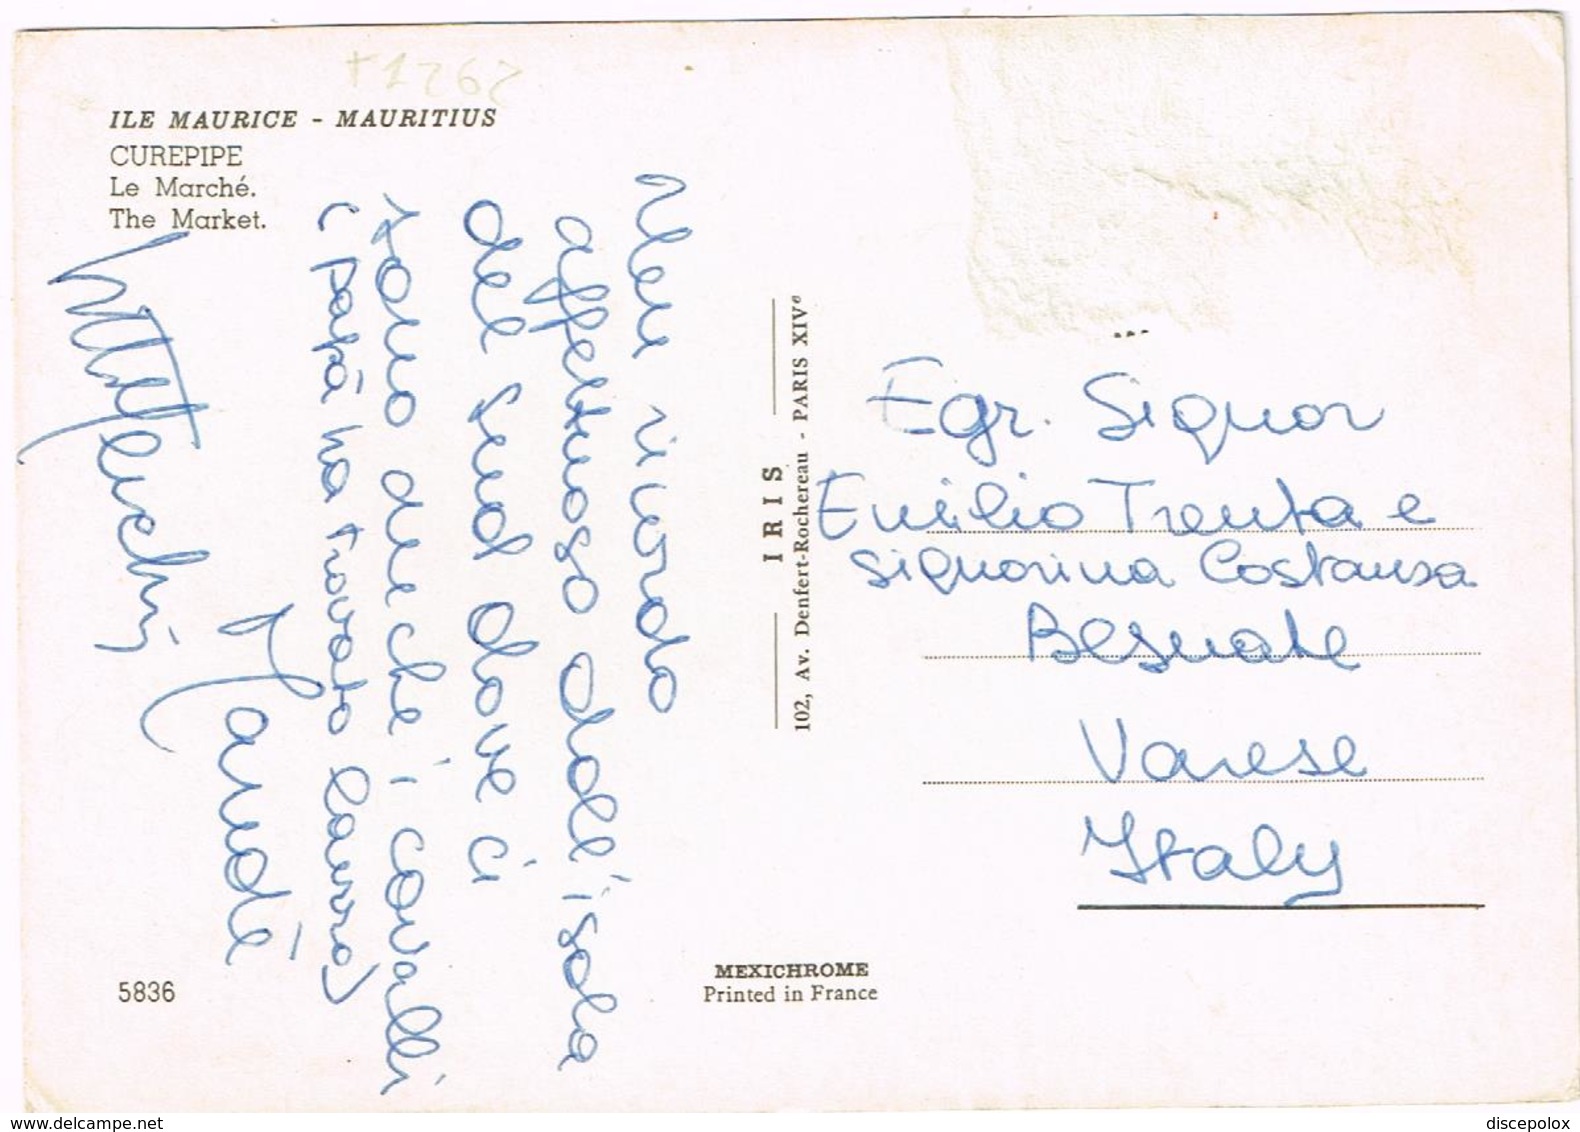 +1262
ILE MAURICE - MAURITIUS
CUREPIPE
Le Marché.
The Market.
Un ricordo
affettuoso dall'isola
del sud dove ci
sono anche i cavalli
( papà ha trovato lavoro)
Maudè
IRIS
102, Av. Denfert-Rochereau - PARIS XIVe
Egr. Signor
Emilio Trenta e
signorina Costanza
Besnate
Varese
Italy
5836
MEXICHROME
Printed in France
delcampe.net
discepolox